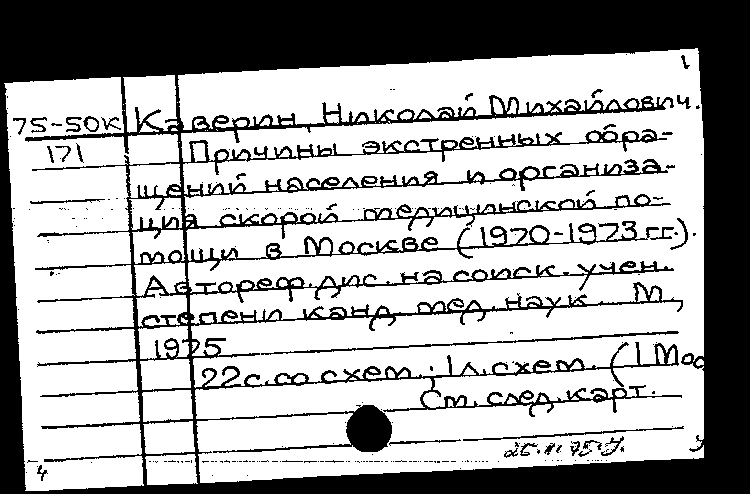 1
75-50к Каверин, Николай Михайлович.
171 Причины экстренных обра-
щений населения и организа-
ция скорой медицинской по-
мощи в Москве (1970-1973 гг.).
Автореф. дис. на соиск. учен.
степени канд. мед. наук. М.,
1975
22 с. со схем.; 1 л. схем. (1 Мос
См. след. карт.
4